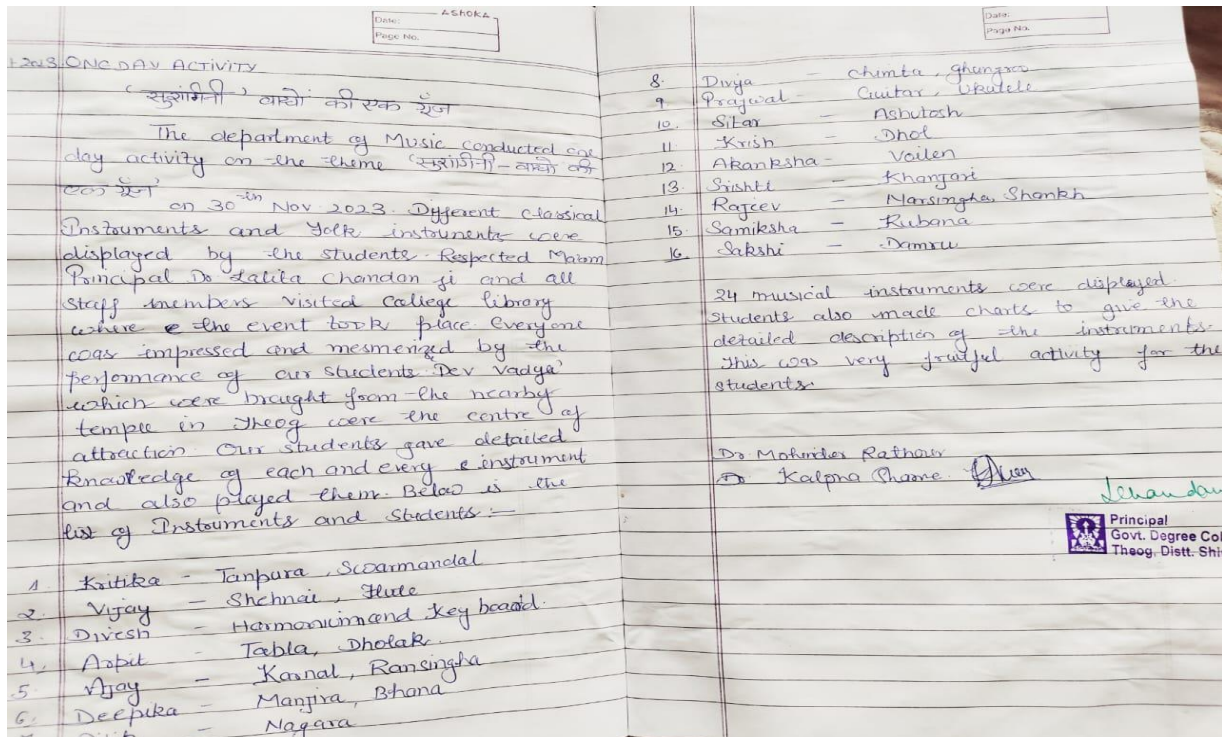 ASHOKA
Date:
Page No.
-2023 ONE DAY ACTIVITY
'सुरांगिनी' वाद्यों की एक गूँज
The department of Music conducted one
day activity on the theme 'सुरांगिनी - वाद्यों की
एक गूँज'
on 30th Nov 2023. Different classical
Instruments and Folk instruments were
displayed by the students. Respected Mam
Principal Dr Lalita Chandan ji and all
staff members visited College library
where the event took place. Everyone
was impressed and mesmerized by the
performance of our students. 'Dev Vadya'
which were brought from the nearby
temple in Theog were the centre of
attraction Our students gave detailed
knowledge of each and every instrument
and also played them. Below is the
list of Instruments and Students :-
1 Kritika - Tanpura, Swarmandal
2. Vijay - Shehnai, Flute
3. Divesh - Harmonium and Key board.
4. Arpit - Tabla, Dholak
5 Ajay - Karnal, Ransingha
6. Deepika - Manjira, Bhana
Nagara
Date:
Page No.
8. Divja - Chimta, ghungroo
9 Prajwal - Guitar, Ukulele
10. Sitar - Ashutosh
11. Krish - Dhol
12. Akanksha - Voilen
13. Srishti - Khanjari
14. Rajeev - Narsingha, Shankh
15. Samiksha - Rubana
16 Sakshi - Damru
24 musical instruments were displayed.
Students also made charts to give the
detailed description of the instruments.
This was very fruitful activity for the
students.
Dr Mohinder Rathour
Dr Kalpna Sharma
Principal
Govt. Degree Col
Theog, Distt. Shi